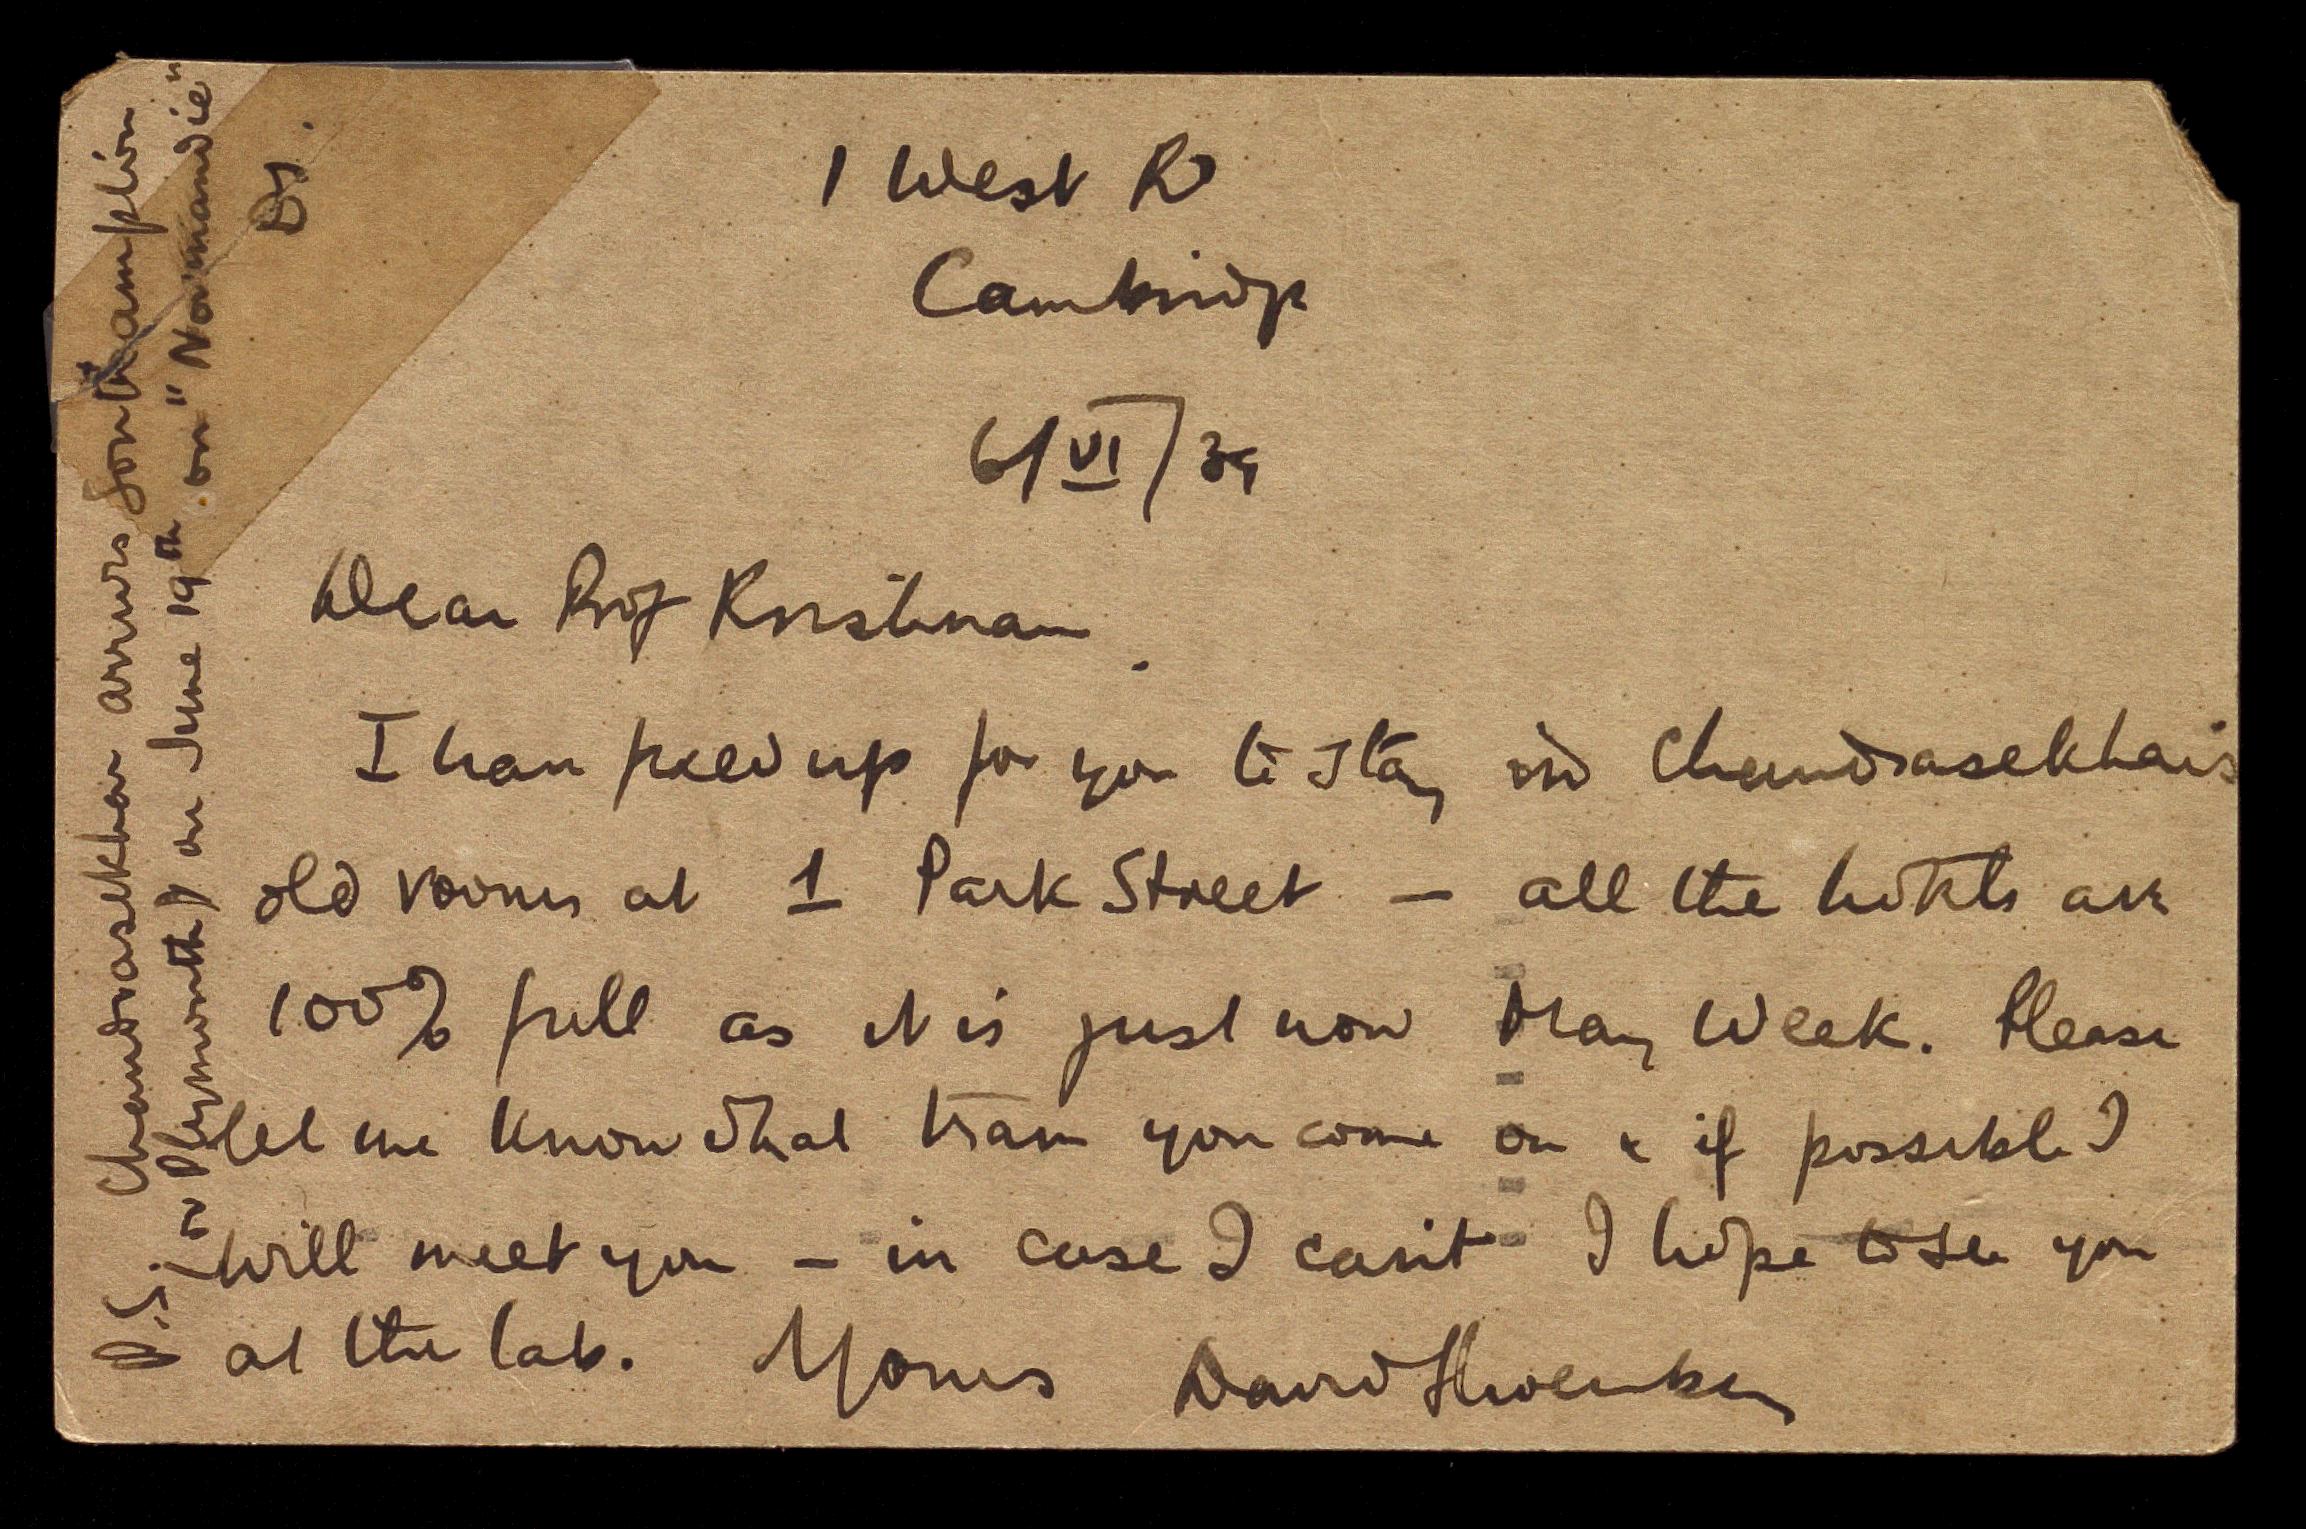 1 West Rd
Cambridge
6/VI/39
Dear Prof Krishnan.
I have fixed up for you to stay in Chandrasekhar's
old rooms at 1 Park Street — all the hotels are
100% full as it is just now May Week. Please
let me know what train you come on & if possible I
will meet you — in case I can't I hope to see you
at the lab. Yours David Shoenberg
P.S. Chandrasekhar arrives Southampton
(or Plymouth) on June 19th on "Normandie"
DS.